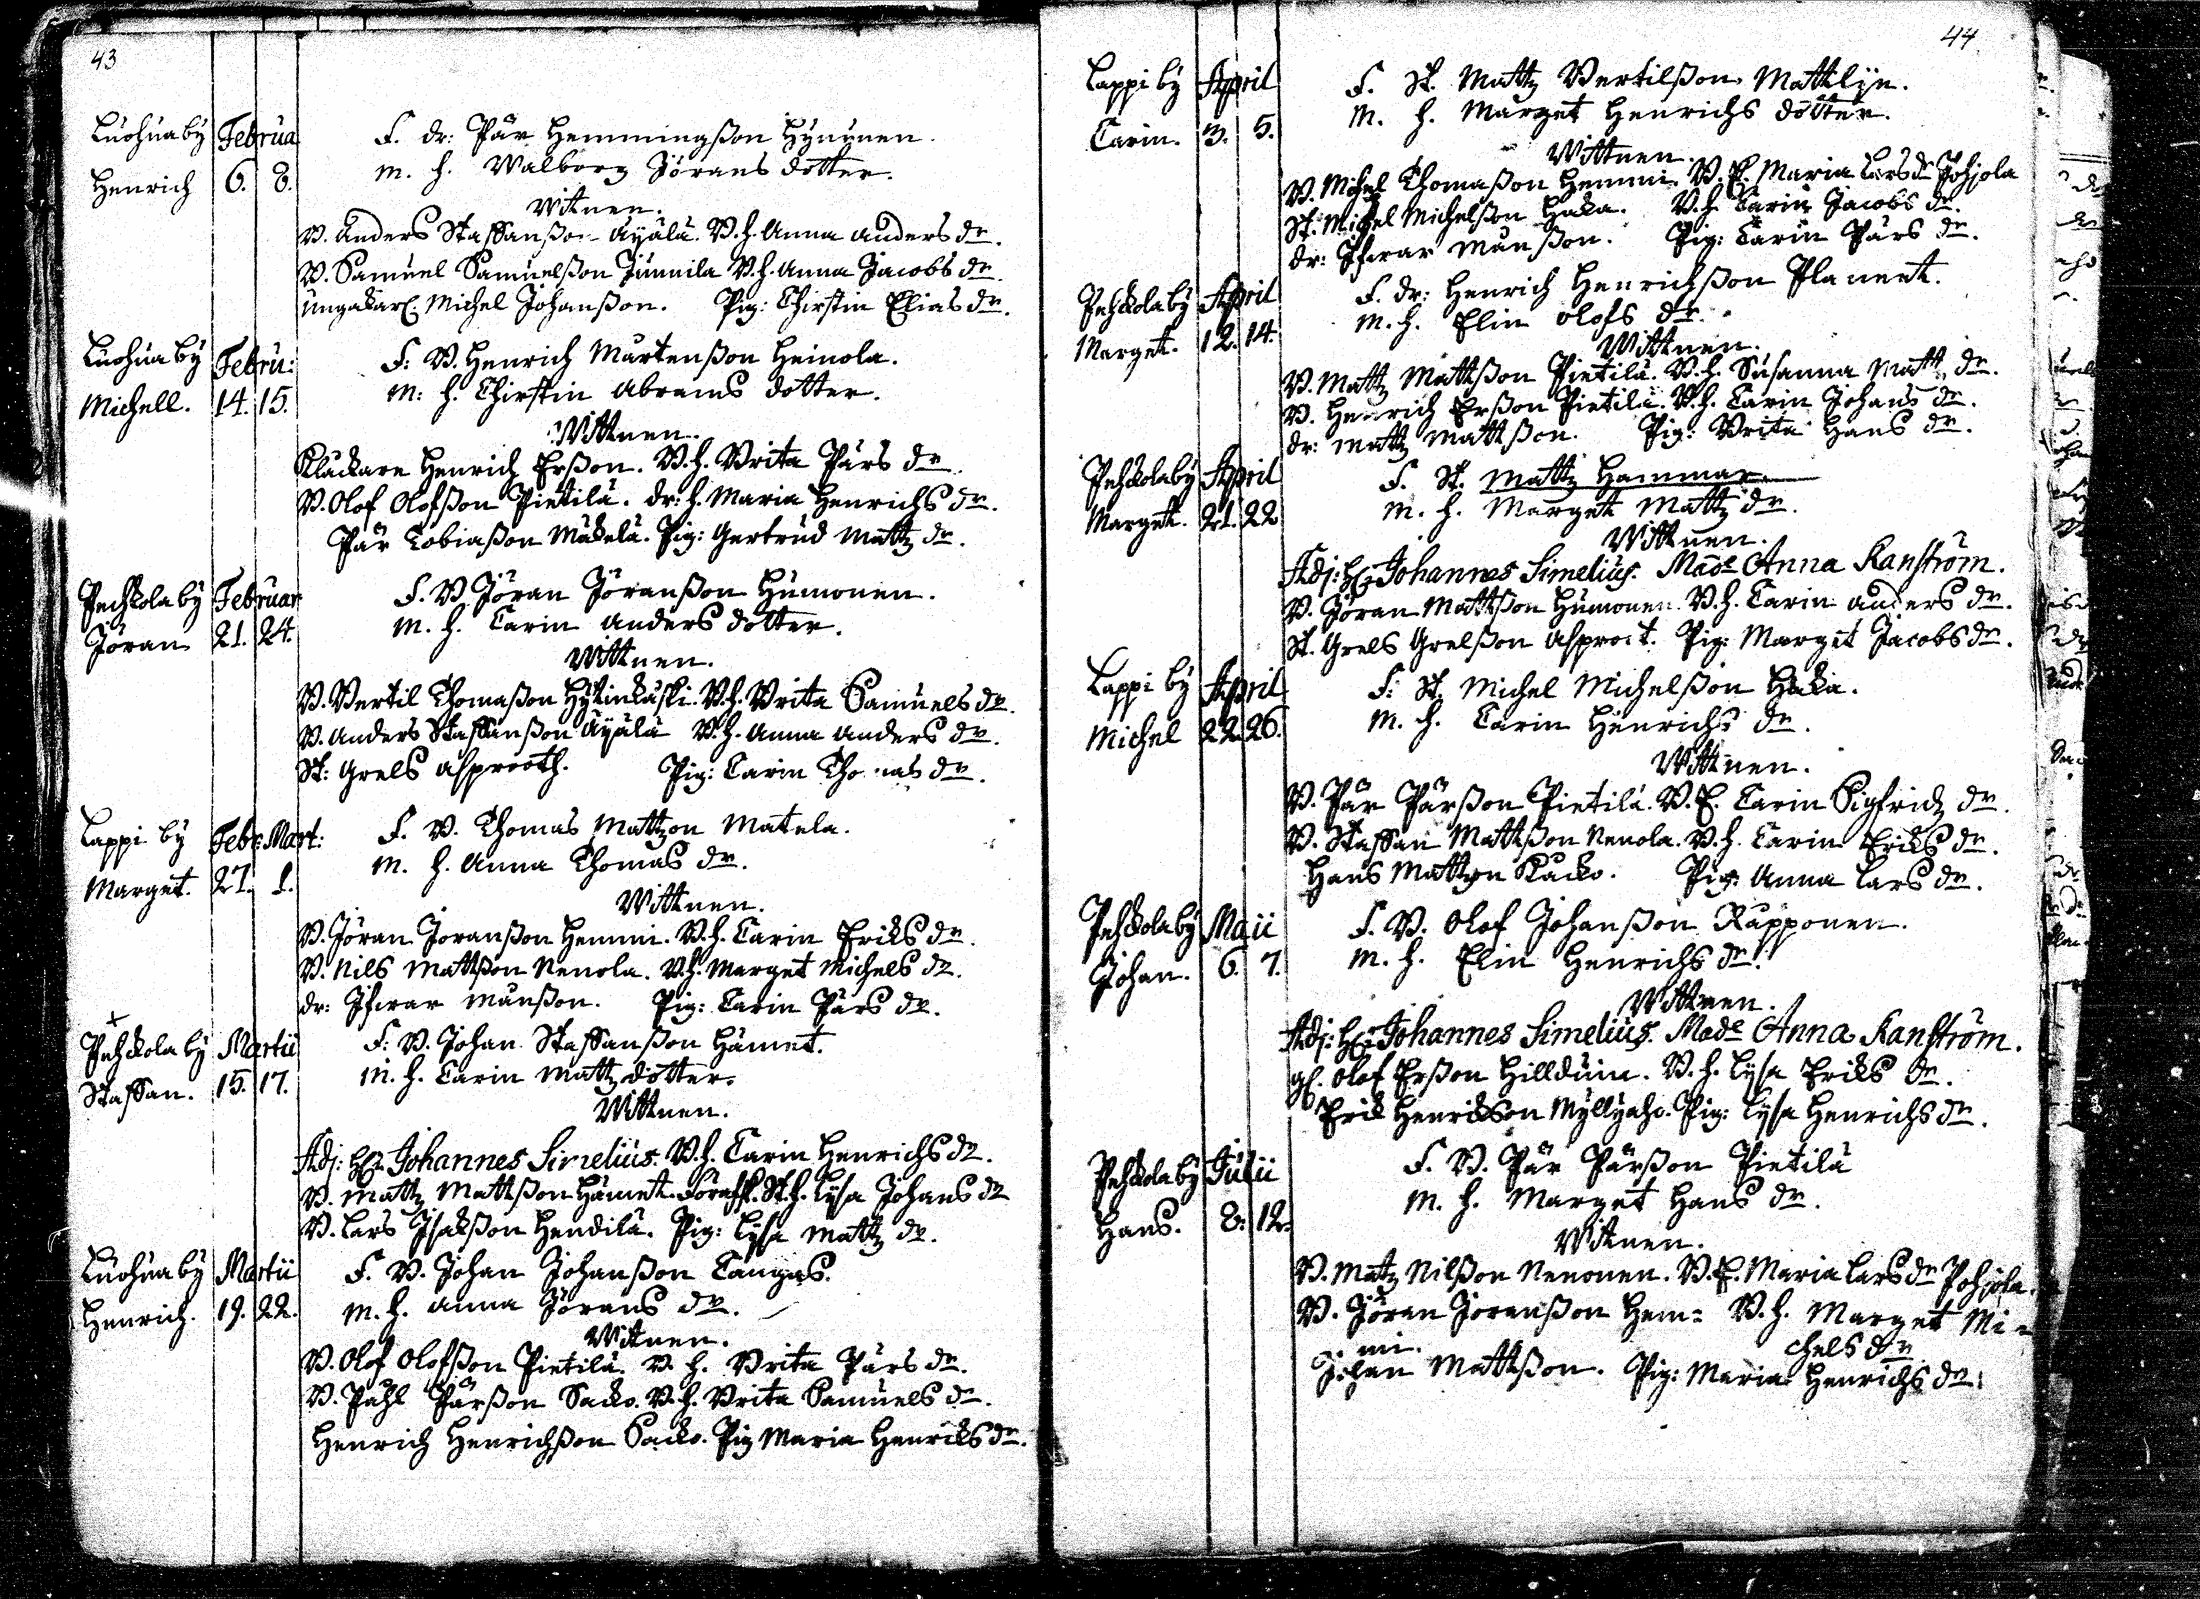 43
Luohua by Februa F. dr: Pär Hemmingßon Hynynen.
Henrich 6. 8. M. h. Walborg Jörans dotter.
Witnen.
B. Anders Staffanßon Äyälä. B. h. Anna Anders dr.
B. Samuel Samuelßon Junnila B. h. Anna Jacobs dr.
Ungakarl. Michel Johanßon. Pig: Chirstin Elias dr.
Luohua by Febru: F: B. Henrich Mårtenßon Heinola.
Michell. 14. 15. M: h. Chirstin Abrams dotter.
Wittnen.
Kläckare Henrich Erßon. B. h. Brita Pärs dr.
B. Olof Olofßon Pietilä. dr: h. Maria Henrichs dr.
Pär Tobiaßon Mäkelä. Pig: Gertrud Mattz dr.
Pehkola by Februar F. B Jöran Jöranßon Humonen.
Jöran 21. 24. M. h. Carin Anders dotter.
Wittnen.
B. Bertil Thomaßon Hyvinkäski. B. h. Brita Samuels dr.
B. Anders Staffanßon Äyälä B. h. Anna Anders dr.
St: Grels Asprooth. Pig: Carin Thomas dr.
Lappi by Febr. Mart: F. B. Thomas Mattzon Matela.
Marget. 27. 1. M. h. Anna Thomas dr.
Wittnen.
B. Jöran Joranßon Hemmi. B. h. Carin Eriks dr.
B. Nils Mattßon Nenola. B. h. Marget Michels dr.
dr: Ifwar Månßon. Pig: Carin Pärs dr.
Pehkola by Martii F: B. Johan Staffanßon Hämet.
Staffan. 15. 17. M. h. Carin Mattz dotter.
Wittnen.
Adj: Hr Johannes Simelius. B. h. Carin Henrichs dr.
B. Mattz Mattßon Hämet. St. h. Lysa Johans dr
B. Lars Isakßon Hendilä. Pig: Lysa Mattz dr.
Luohua by Martii F. B. Johan Johanßon Tangas.
Henrich. 19. 22. M. h. Anna Jörans dr.
Witnen.
B. Olof Olofßon Pietilä. B. h. Brita Pärs dr.
B. Påhl Pärßon Sacko. B. h. Brita Samuels dr.
Henrich Henrichßon Sacko. Pig Maria Henricks dr.
44
Lappi by April F. St. Mattz Bertilßon Mattlijn.
Carin. 3. 5. M. h. Marget Henrichs dotter.
Wittnen.
B. Michel Thomaßon Hemmi. B. E. Maria Lars dr Pohjola
St: Michel Michelßon Haka. B. h. Carin Jacobs dr.
dr: Ifwar Månßon. Pig: Carin Pärs dr.
Pehkola by April F. dr: Henrich Henrichßon Planeet.
Marget. 12. 14. M. h. Elin Olofs dr.
Wittnen.
B. Mattz Mattßon Pietilä. B. h. Susanna Mattz dr.
B. Henrich Erßon Pietilä. B. h. Carin Johans dr.
dr: Mattz Mattßon. Pig: Brita Hans dr.
Pehkola by April F. St. Mattz Hammar.
Marget. 21. 22 M. h. Marget Mattz dr.
Wittnen.
Adj: Hr Johannes Simelius. Made Anna Kanström.
B. Jöran Mattßon Humonen. B. h. Carin Anders dr.
St. Grels Grelßon Asproot. Pig: Marget Jacobs dr.
Lappi by April F: St. Michel Michelßon Haka.
Michel 22. 26. M. h. Carin Henrichs dr.
Wittnen.
B. Pär Pärßon Pietilä. B. E. Carin Sigfridz dr.
B. Staffan Mattßon Nenola. B. h. Carin Eriks dr.
Hans Mattzon Kacko. Pig: Anna Lars dr.
Pehkola by Maii F. B. Olof Johanßon Rapponen.
Johan. 6. 7. M. h. Elin Henrichs dr.
Wittnen.
Adj: Hr Johannes Simelius. Made Anna Kanström.
gl. Olof Erßon Hillduin. B. h. Lysa Eriks dr.
Erik Henrikson Myllyaho. Pig: Lysa Henrichs dr.
Pehkola by Julii F. B. Pär Pärßon Pietilä
Hans. 8. 12. M. h. Marget Hans dr.
Witnen.
B. Matz Nilßon Nenonen. B. E. Maria Lars dr Pohjola.
B. Jöran Joranßon Hem= B. h. Marget Mi=
mi. chels dr
Johan Mattßon. Pig: Maria Henrichs dr: